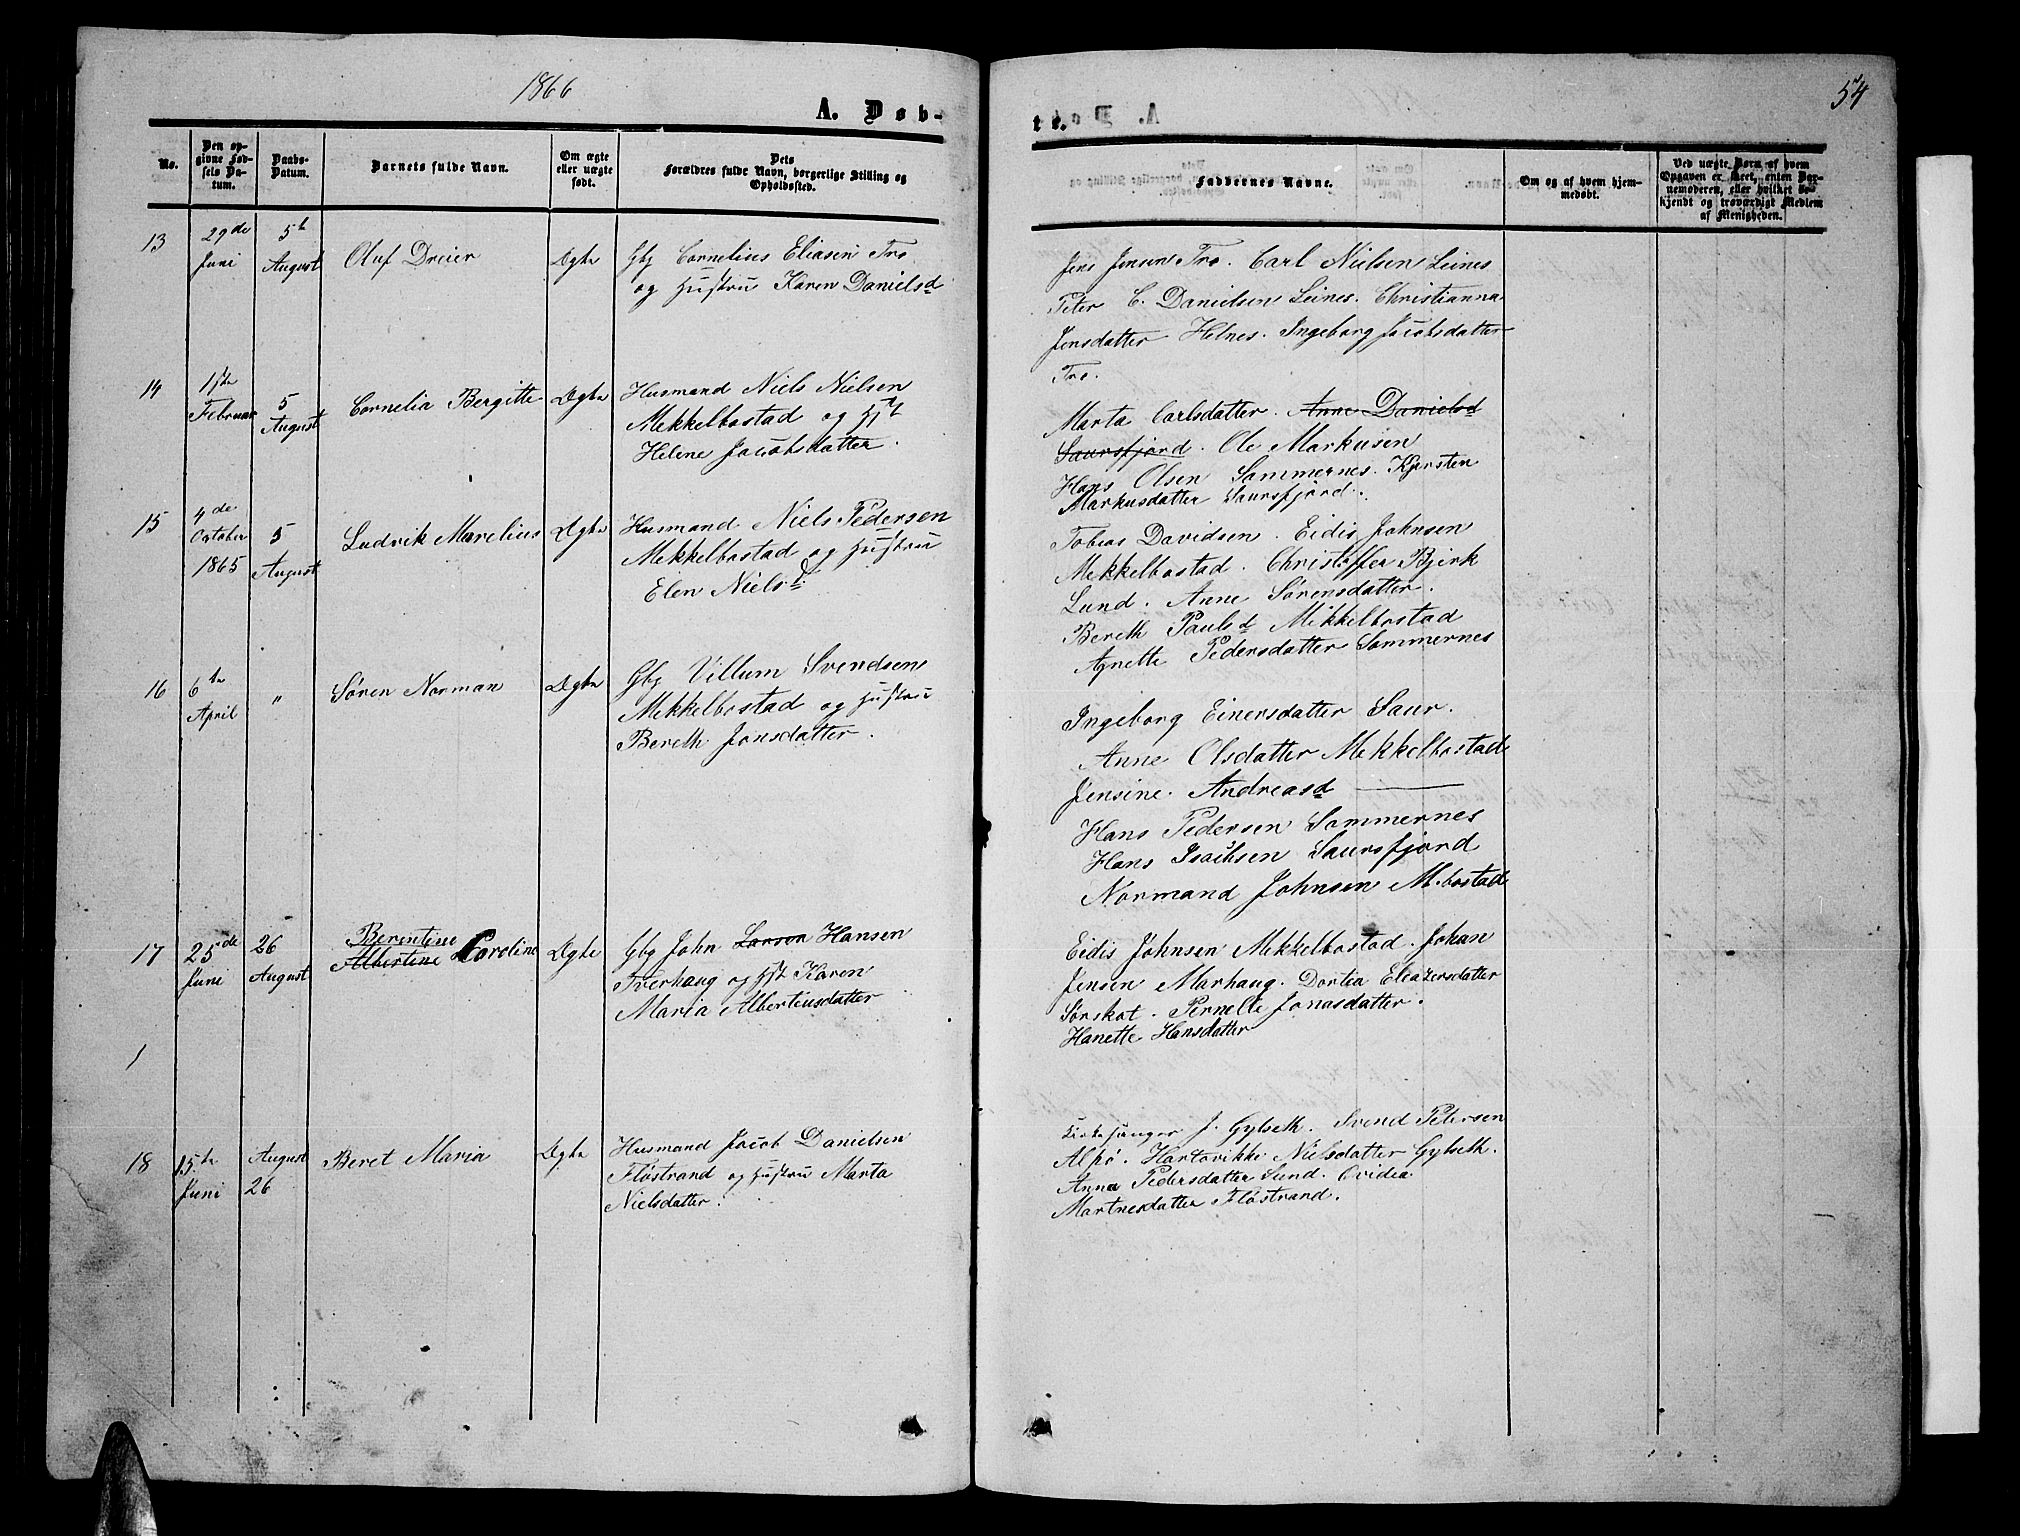 1866
A. Døb-
No.
Den op-
givne Fød-
sels Da-
tum.
Daabs-
Datum.
Barnets fulde Navn.
Om ægte
eller uægte
født.
Dets
Forældres fulde Navn, borgerlige Stilling og
Opholdssted.
13
29de
Juni
5t
August
Oluf Dreier
Ægte
Gbg Cornelius Eliasen Tro
og Hustru Karen Danielsd
14
1ste
Februar
5
August
Cornelia Bergitte
Ægte
Husmand Niels Nielsen
Mekkelbostad og Hst
Helene Jacobsdatter.
15
4de
October
1865
5
August
Ludvik Marelius
Ægte
Husmand Niels Pedersen
Mekkelbostad og Hustru
Elen Nielsd.
16
6te
April
"
Søren Norman
Ægte
Gbg Villum Svendsen
Mekkelbostad og Hustru
Bereth Jonsdatter.
17
25de
Juni
26
August
Berentine
Albertine Caroline
Ægte
Gbg John Larsen Hansen
Tverhaug og Hst Karen
Maria Albertinsdatter
1
18
15te
Juni
August
26
Beret Maria
Ægte
Husmand Jacob Danielsen
Fløstrand og Hustru Marta
Nielsdatter.
54
te.
Faddernes Navne.
Om og af hvem hjem-
medøbt.
Ved uægte Børn af hvem
Opgaven er skeet, enten Bar-
nemoderen, eller hvilket be-
kjendt og troværdigt Medlem
af Menigheden.
Jens Jensen Tro. Carl Nielsen Leines
Peter C. Danielsen Leines. Christianna
Jensdatter Helnes. Ingeborg Jacobsdatter
Tro.
Marta Carlsdatter. Anne Danielsd
Saursfjord. Ole Markusen
Hans Olsen Sommernes. Kjersten
Markusdatter Saursfjord.
Tobias Davidsen. Eidis Johnsen
Mekkelbostad. Christoffer Bjerk
Lund. Anne Sørensdatter.
Bereth Paulsd Mikkelbostad
Agnette Pedersdatter Sommernes
Ingeborg Einersdatter Saur.
Anne Olsdatter Mekkelbostad
Jensine Andreasd ———
Hans Pedersen Sommernes
Hans Isachsen Saursfjord
Normand Johnsen M.bostad
Eidis Johnsen Mekkelbostad. Johan
Jensen Marhaug. Dortea Eleazersdatter
Sørskot. Pernelle Jonasdatter.
Hanette Hansdatter
Kirkesanger J. Gylseth. Svend Petersen
Alpø. Hartvikke Nielsdatter Gylseth.
Anna Pedersdatter Lund. Ovidea
Martnesdatter Fløstrand.